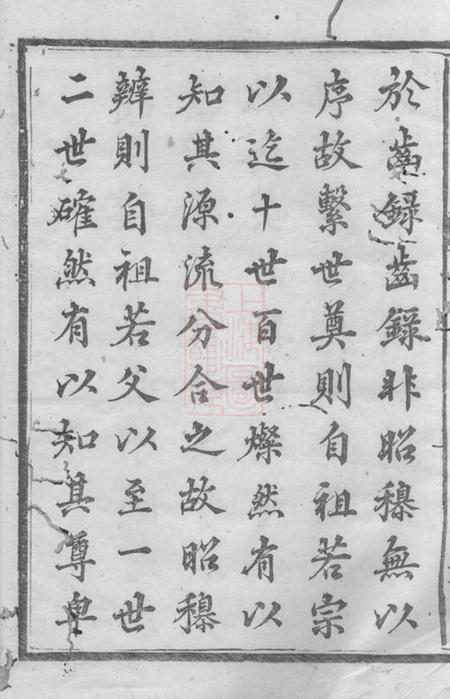 於齒録齒録非昭穆無以
序故繫世奠則自祖若宗
以迄十世百世燦然有以
知其源流分合之故昭穆
辨則自祖若父以至一世
二世確然有以知其尊卑